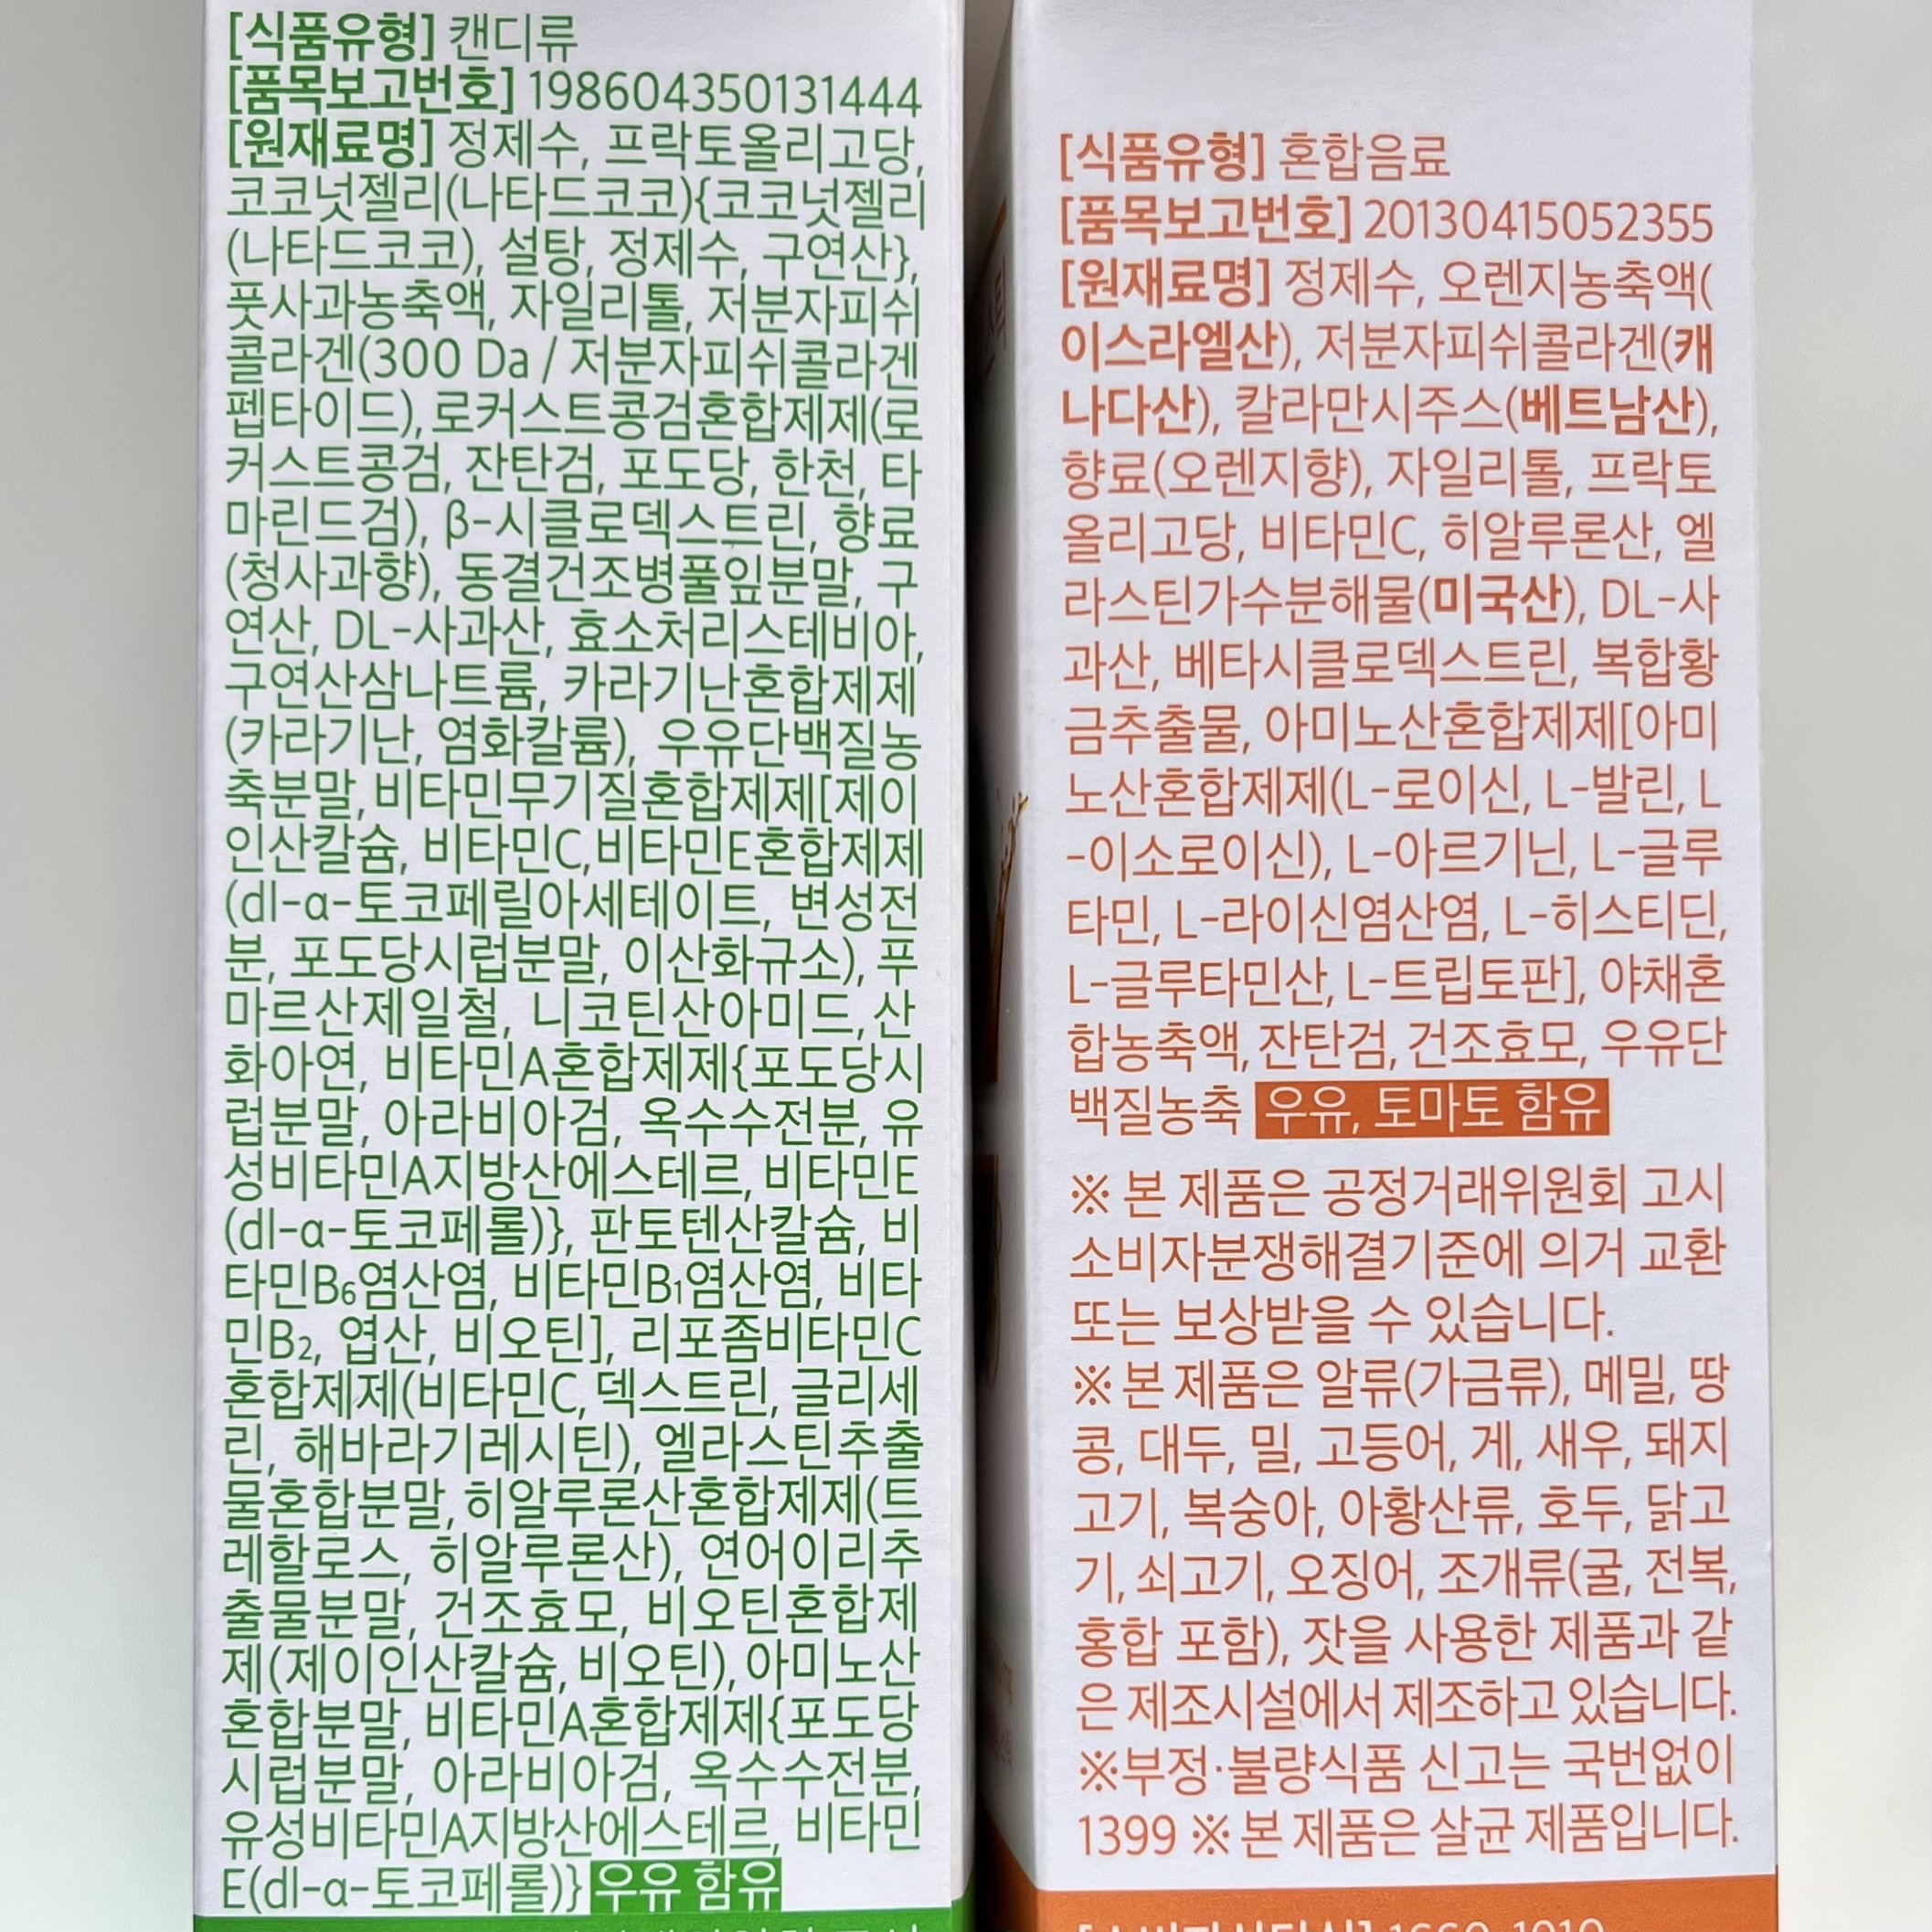 [식품유형] 캔디류
[품목보고번호] 198604350131444
[원재료명] 정제수, 프락토올리고당,
코코넛젤리(나타드코코){코코넛젤리
(나타드코코), 설탕, 정제수, 구연산},
풋사과농축액, 자일리톨, 저분자피쉬
콜라겐(300 Da / 저분자피쉬콜라겐
펩타이드), 로커스트콩검혼합제제(로
커스트콩검, 잔탄검, 포도당, 한천, 타
마린드검), β-시클로덱스트린, 향료
(청사과향), 동결건조병풀잎분말, 구
연산, DL-사과산, 효소처리스테비아,
구연산삼나트륨, 카라기난혼합제제
(카라기난, 염화칼륨), 우유단백질농
축분말, 비타민무기질혼합제제[제이
인산칼슘, 비타민C,비타민E혼합제제
(dl-α-토코페릴아세테이트, 변성전
분, 포도당시럽분말, 이산화규소), 푸
마르산제일철, 니코틴산아미드, 산
화아연, 비타민A혼합제제{포도당시
럽분말, 아라비아검, 옥수수전분, 유
성비타민A지방산에스테르, 비타민E
(dl-α-토코페롤)}, 판토텐산칼슘, 비
타민B₆염산염, 비타민B₁염산염, 비타
민B₂, 엽산, 비오틴], 리포좀비타민C
혼합제제(비타민C, 덱스트린, 글리세
린, 해바라기레시틴), 엘라스틴추출
물혼합분말, 히알루론산혼합제제(트
레할로스, 히알루론산), 연어이리추
출물분말, 건조효모, 비오틴혼합제
제(제이인산칼슘, 비오틴), 아미노산
혼합분말, 비타민A혼합제제{포도당
시럽분말, 아라비아검, 옥수수전분,
유성비타민A지방산에스테르, 비타민
E(dl-α-토코페롤)} 우유 함유
[식품유형] 혼합음료
[품목보고번호] 20130415052355
[원재료명] 정제수, 오렌지농축액(
이스라엘산), 저분자피쉬콜라겐(캐
나다산), 칼라만시주스(베트남산),
향료(오렌지향), 자일리톨, 프락토
올리고당, 비타민C, 히알루론산, 엘
라스틴가수분해물(미국산), DL-사
과산, 베타시클로덱스트린, 복합황
금추출물, 아미노산혼합제제[아미
노산혼합제제(L-로이신, L-발린, L
-이소로이신), L-아르기닌, L-글루
타민, L-라이신염산염, L-히스티딘,
L-글루타민산, L-트립토판], 야채혼
합농축액, 잔탄검, 건조효모, 우유단
백질농축 우유, 토마토 함유
※ 본 제품은 공정거래위원회 고시
소비자분쟁해결기준에 의거 교환
또는 보상받을 수 있습니다.
※ 본 제품은 알류(가금류), 메밀, 땅
콩, 대두, 밀, 고등어, 게, 새우, 돼지
고기, 복숭아, 아황산류, 호두, 닭고
기, 쇠고기, 오징어, 조개류(굴, 전복,
홍합 포함), 잣을 사용한 제품과 같
은 제조시설에서 제조하고 있습니다.
※부정·불량식품 신고는 국번없이
1399 ※ 본 제품은 살균 제품입니다.